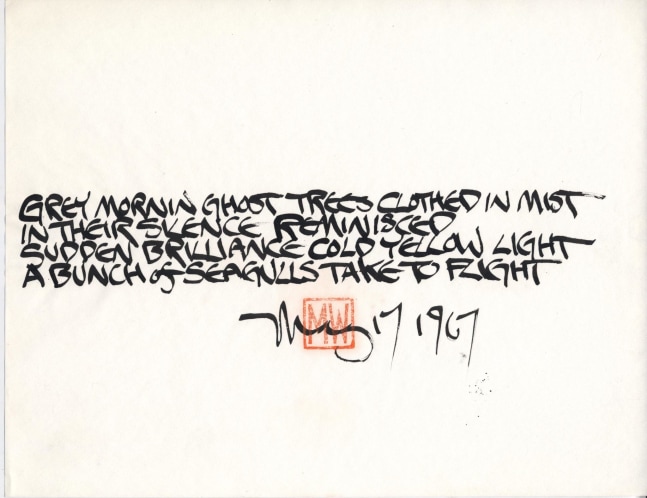 GREY MORNIN GHOST TREES CLOTHED IN MIST
IN THEIR SILENCE REMINISCED
SUDDEN BRILLIANCE COLD YELLOW LIGHT
A BUNCH of SEAGULLS TAKE TO FLIGHT
May 17 1967
MW